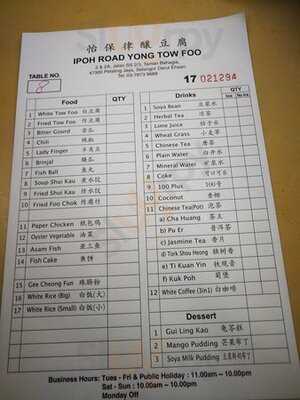 怡保律釀豆腐
IPOH ROAD YONG TOW FOO
2 & 2A, Jalan SS 2/3, Taman Bahagia,
47300 Petaling Jaya, Selangor Darul Ehsan
Tel: 03-7873 9688
TABLE NO. 8
17 021294
Food QTY
1 White Tow Foo 白豆腐
2 Fried Tow Foo 炸豆腐
3 Bitter Gourd 苦瓜
4 Chili 辣椒
5 Lady Finger 羊角豆
6 Brinjal 矮瓜
7 Fish Ball 魚丸
8 Soup Shui Kau 煮水餃
9 Fried Shui Kau 炸水餃
10 Fried Foo Chok 炸腐竹
11 Paper Chicken 紙包鸡
12 Oyster Vegetable 油菜
13 Asam Fish 亚三魚
14 Fish Cake 魚饼
15 Gee Cheong Fun 猪腸粉
16 White Rice (Big) 白饭(大)
17 White Rice (Small) 白饭(小)
Drinks QTY
Ice No Ice
1 Soya Bean 豆浆水
2 Herbal Tea 涼茶
3 Lime Juice 桔子水
4 Wheat Grass 小麦草
5 Chinese Tea 唐茶
6 Plain Water 白开水
7 Mineral Water 矿泉水
8 Coke 可口可乐
9 100 Plus 100号
10 Coconut 椰子
11 Chinese Tea(Pot) 泡茶
a) Cha Huang 茶王
b) Pu Er 普洱茶
c) Jasmine Tea 香片
d) Tiark Shou Heong
e) Ti Kuan Yin 铁观音
f) Kuk Poh 菊堡
12 White Coffee (3in1) 白咖啡
Dessert
1 Gui Ling Kao 龟苓糕
2 Mango Pudding 芒果布丁
3 Soya Milk Pudding
Business Hours: Tues - Fri & Public Holiday : 11.00am ~ 10.00pm
Sat - Sun : 10.00am ~ 10.00pm
Monday Off